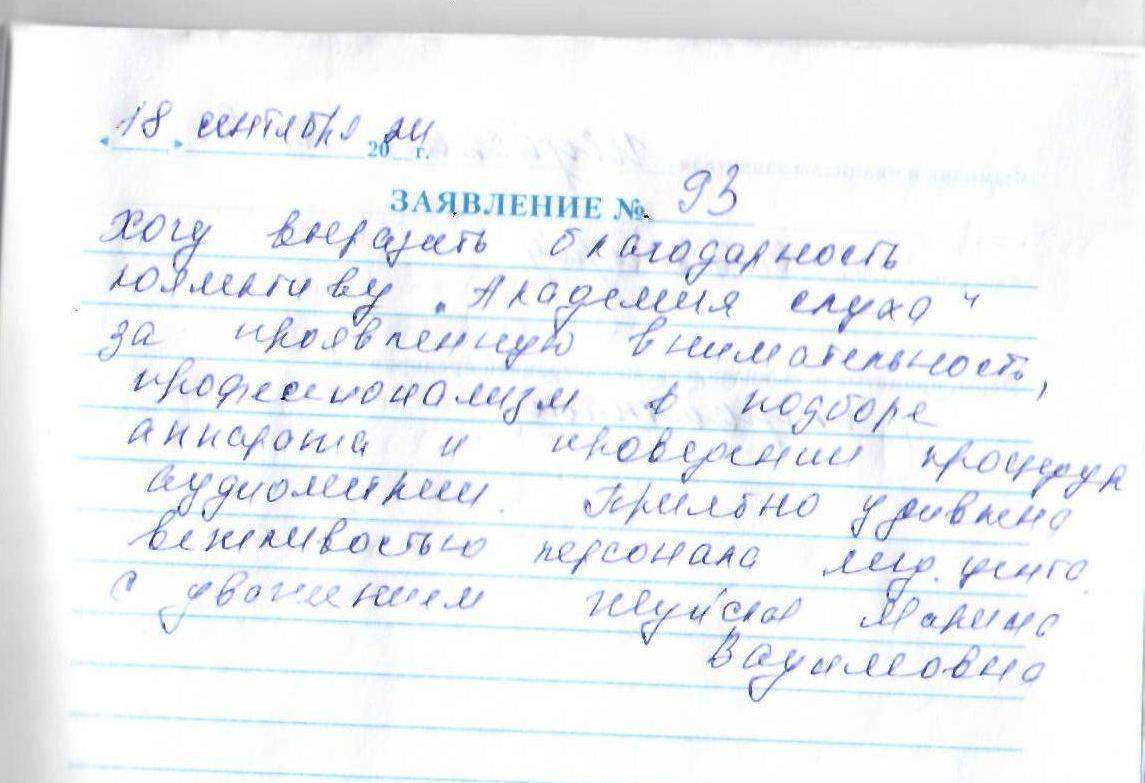 « 18 » сентября 2024 г.
ЗАЯВЛЕНИЕ № 93
Хочу выразить благодарность
коллективу „Академия слуха"
за проявленную внимательность,
профессионализм в подборе
аппарата и проведении процедур
аудиометрии. Приятно удивлена
вежливостью персонала мед. центра
С уважением Марина
Вадимовна